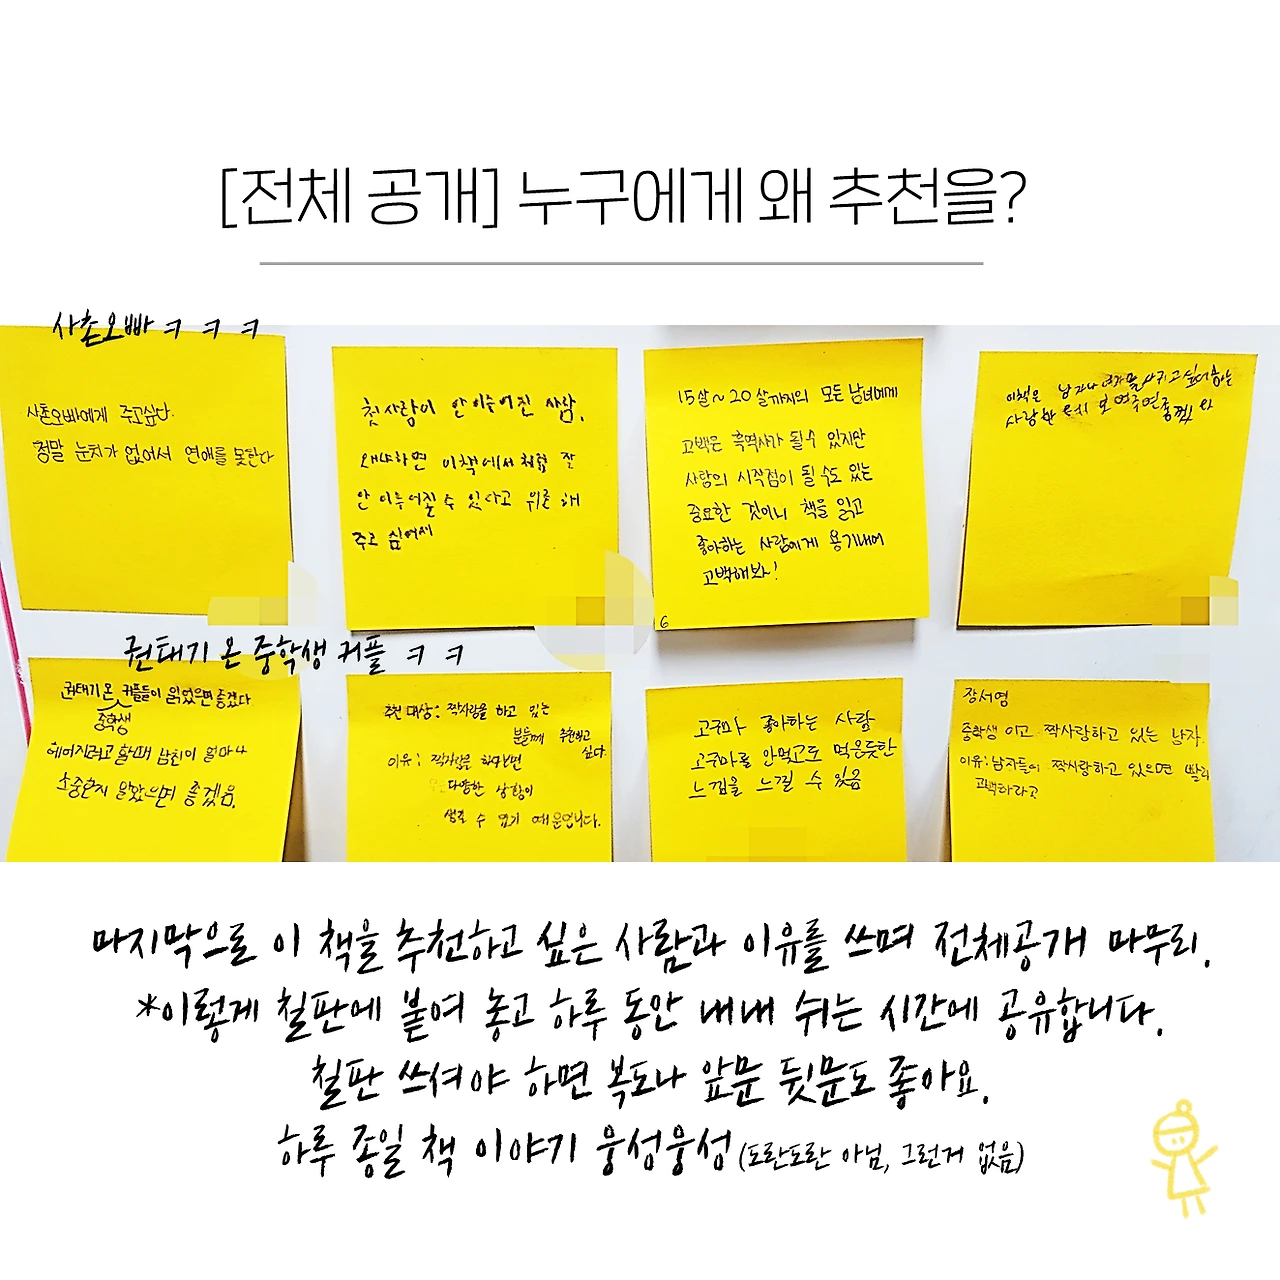 [전체 공개] 누구에게 왜 추천을?
사촌오빠 ㅋ ㅋ ㅋ
사촌오빠에게 주고싶다.
정말 눈치가 없어서 연애를 못한다
첫사랑이 안 이루어진 사람.
왜냐하면 이책에서 처럼 잘
안 이루어질 수 있다고 위로 해
주고 싶어서
15살~20살까지의 모든 남녀에게
고백은 흑역사가 될 수 있지만
사랑의 시작점이 될 수도 있는
중요한 것이니 책을 읽고
좋아하는 사람에게 용기내어
고백해봐!
6
이책은 남자나 여자를 사귀고 싶어하는
사람한테 보여주면 좋겠
권태기 온 중학생 커플 ㅋ ㅋ
권태기 온 커플들이 읽었으면 좋겠다
중학생
헤어지려고 할때 남친이 얼마나
소중한지 알았으면 좋겠음.
추천 대상: 짝사랑을 하고 있는
분들께 추천하고
싶다.
이유: 짝사랑을 하다보면
다양한 상황이
생길 수 있기 때문입니다.
고구마 좋아하는 사람
고구마를 안먹고도 먹은듯한
느낌을 느낄 수 있음
장서영
중학생 이고 짝사랑하고 있는 남자
이유: 남자들이 짝사랑하고 있으면 빨리
고백하라고
마지막으로 이 책을 추천하고 싶은 사람과 이유를 쓰며 전체공개 마무리.
*이렇게 칠판에 붙여 놓고 하루 동안 내내 쉬는 시간에 공유합니다.
칠판 쓰셔야 하면 복도나 앞문 뒷문도 좋아요.
하루 종일 책 이야기 웅성웅성(도란도란 아님, 그런거 없음)